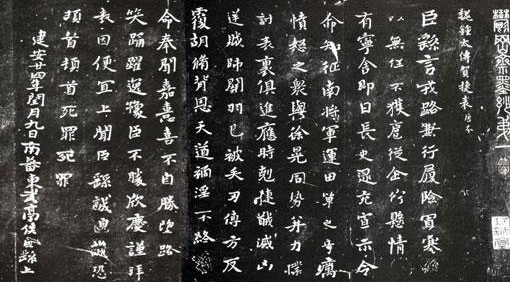 鬱岡齋墨妙第一
魏鍾太傅賀捷表 唐本
臣繇言戎路兼行履險冒寒
以無任不獲扈從企佇懸情
有寧舍即日長史逯充宣示令
命知征南將軍運田單之奇厲
憤怒之衆與徐晃同勢并力撲
討表裏俱進應時剋捷馘滅凶
逆賊帥關羽已被矢刃傅方反
覆胡脩背恩天道禍淫不終
命奉聞嘉憙喜不自勝望路
笑踊躍逸豫臣不勝欣慶謹拜
表因便宜上聞臣繇誠惶誠恐
頓首頓首死罪死罪
建安廿四年閏月九日南蕃東武亭侯臣繇上